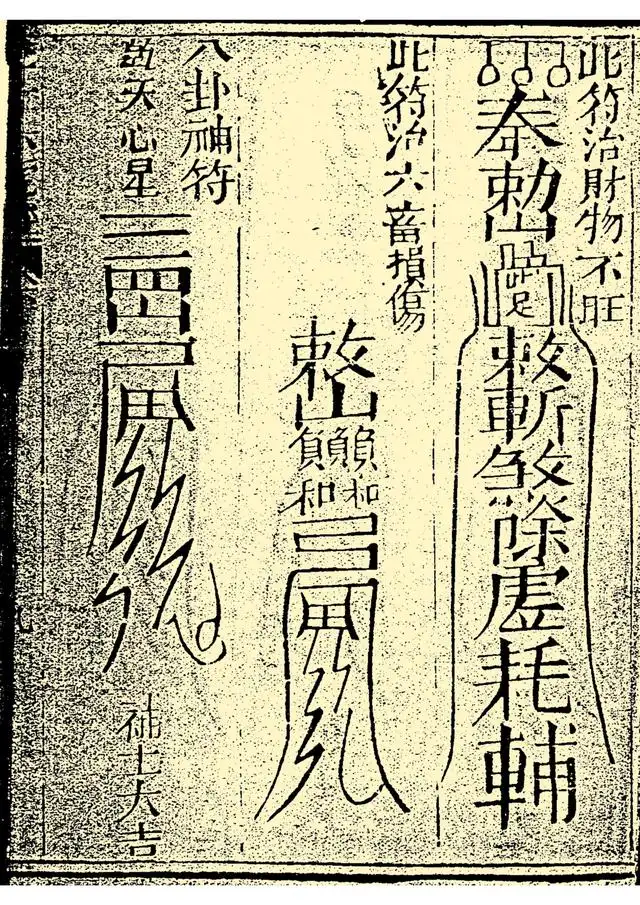 此符治財物不旺
奉勅
敕斬煞除虚耗輔
此符治六畜損傷
敕
八卦神符
天心星
補土大吉